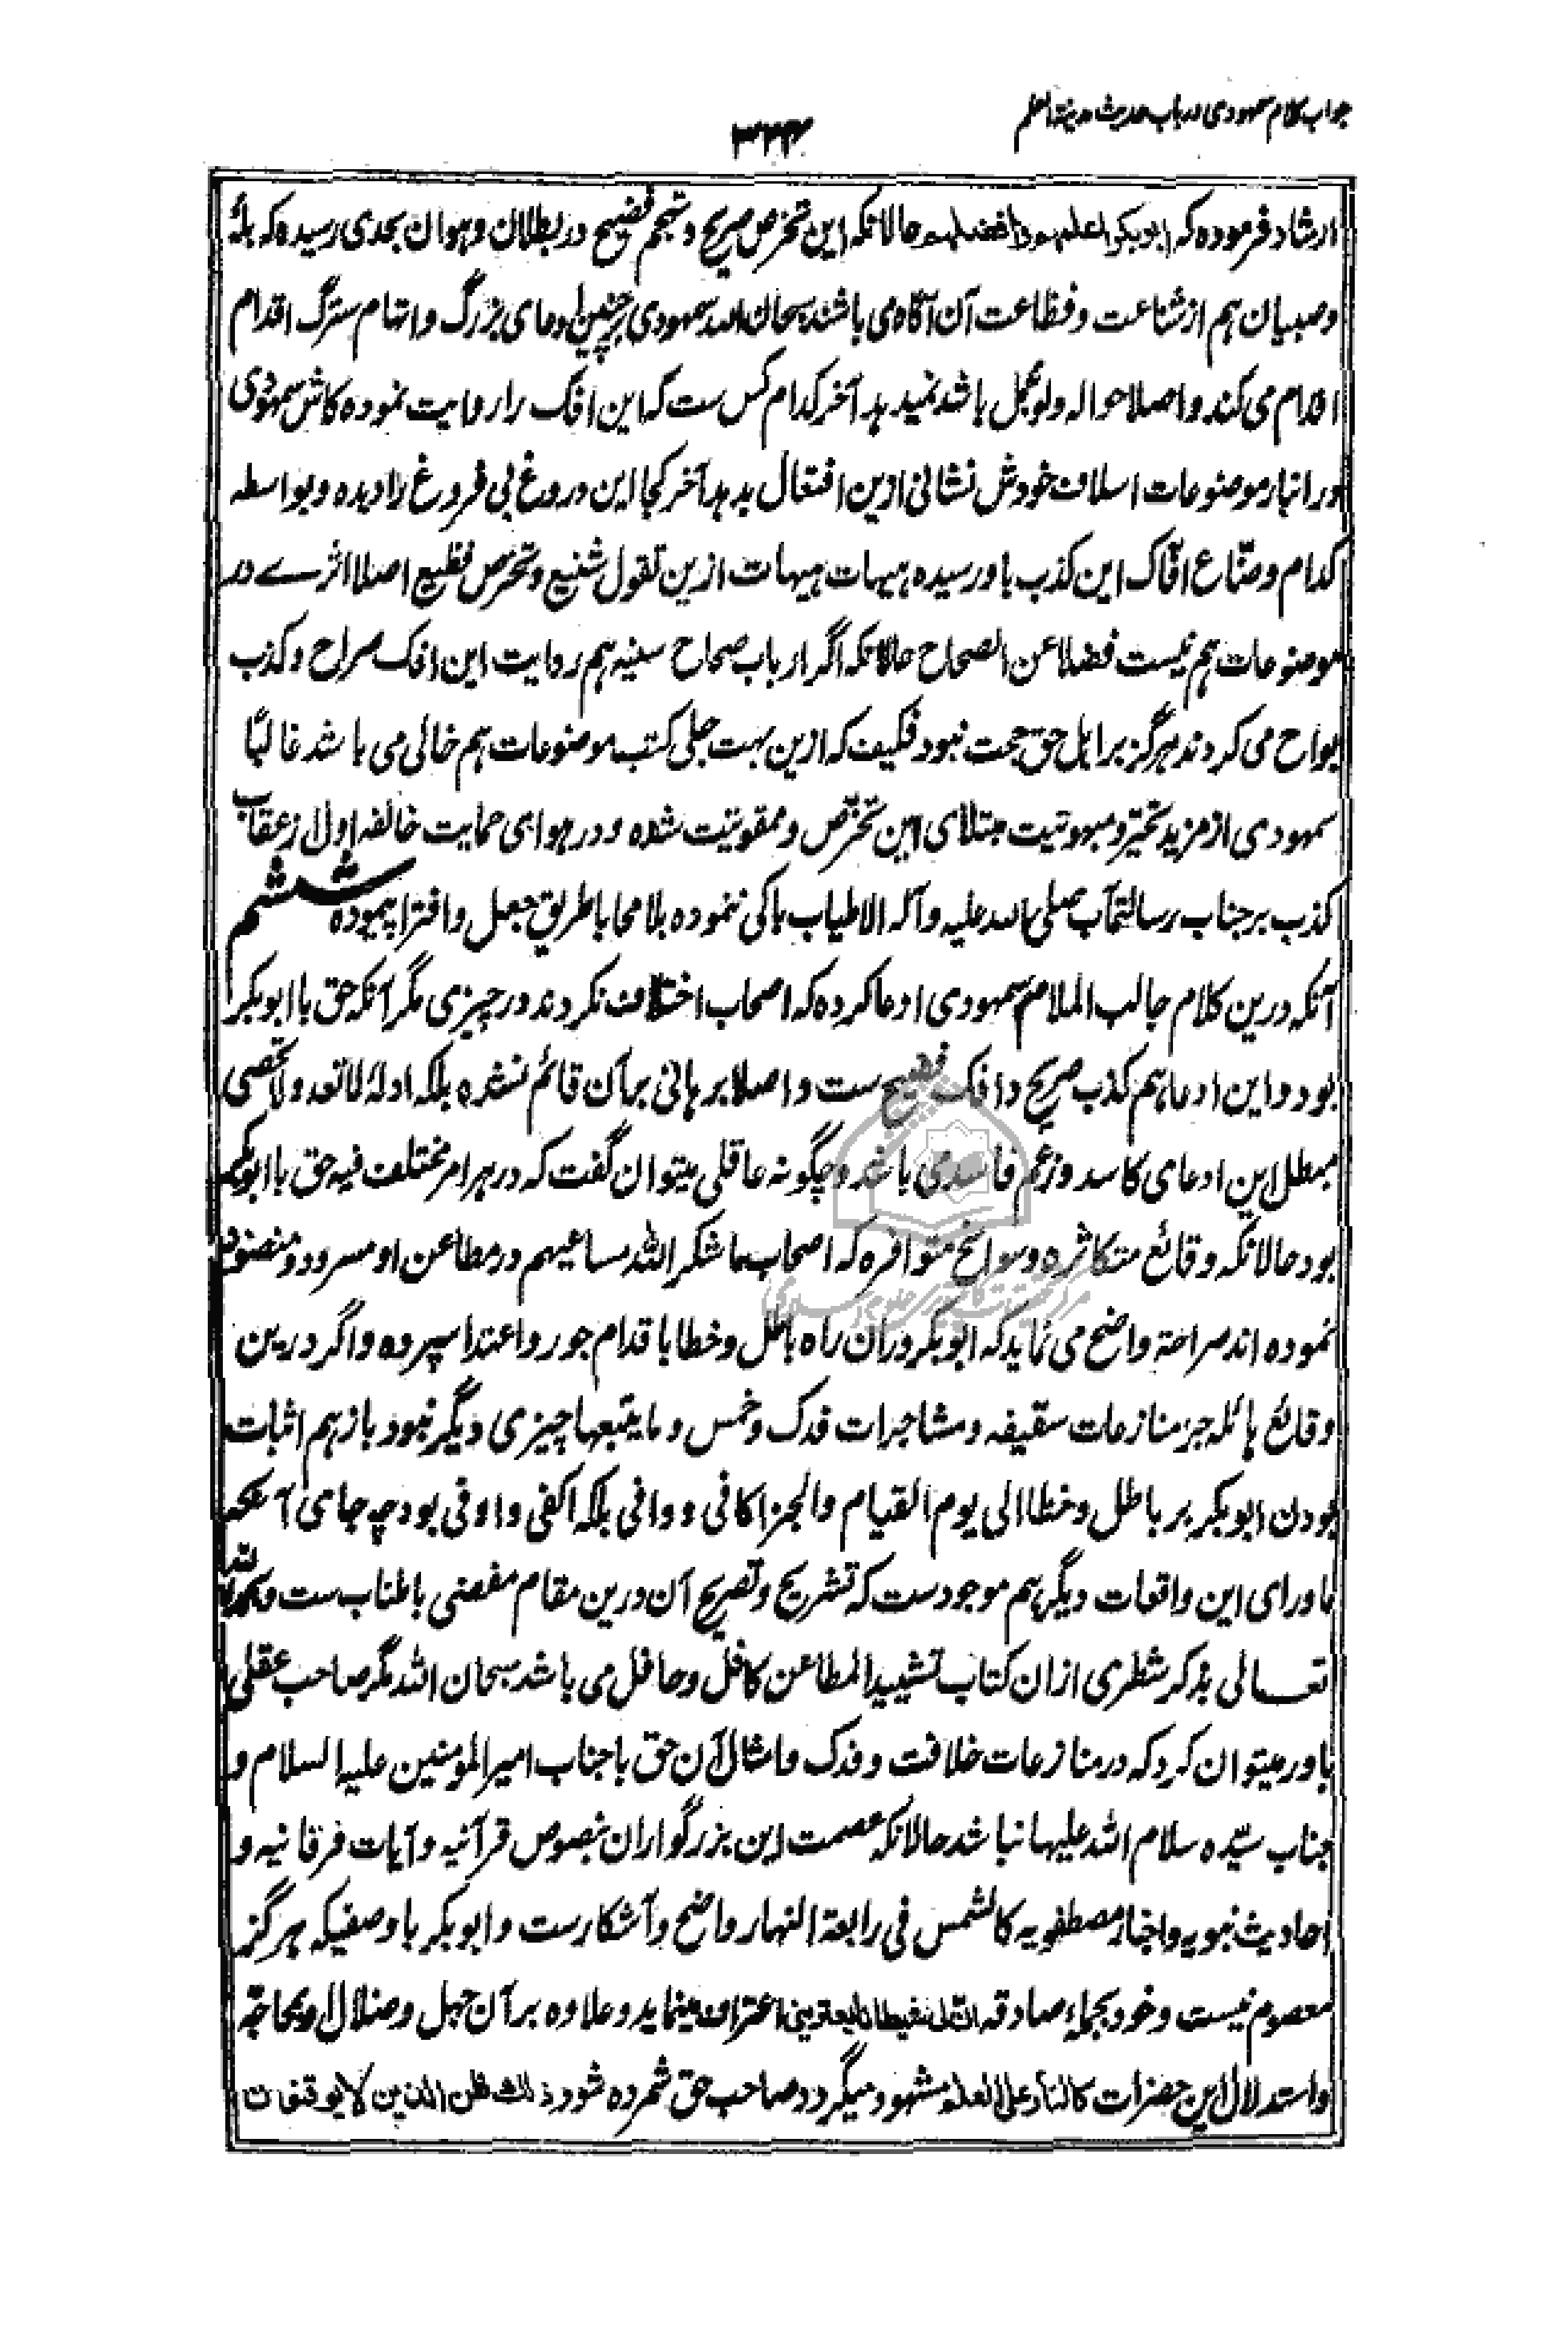 جواب کلام سمهودی در باب حدیث مدینة العلم
۳۳۴
ارشاد فرموده که ابوبکر اعلمهم وافضلهم حالانکه این تخرص صریح و تهجم فضیح در بطلان و هوان بحدی رسیده که بله
و صبیان هم از شناعت و فظاعت آن آگاه می باشند سبحان الله سمهودی بر چنین ادعای بزرگ و اتهام سترگ اقدام
اقدام می کند و اصلا حواله ولو بمجمل باشد نمیدهد آخر کدام کس ست که این افک را روایت نموده کاش سمهودی
در انبار موضوعات اسلاف خودش نشانی ازین افتعال بدهد آخر کجا این دروغ بی فروغ را دیده و بواسطه
کدام وضّاع افّاک این کذب باو رسیده هیهات هیهات ازین تقول شنیع و تخرص فظیع اصلا اثرے در
موضوعات هم نیست فضلا عن الصحاح حالانکه اگر ارباب صحاح سنیه هم روایت این افک صراح و کذب
بواح می کردند هرگز بر اهل حق حجت نبود فکیف که ازین بهت جلی کتب موضوعات هم خالی می باشد غالبًا
سمهودی از مزید تحیّر و مبهوتیت مبتلای این تخرّص و ممقوتیت شده و در هوای حمایت خالفه اول از عقاب
کذب بر جناب رسالتمآب صلی الله علیه و آله الاطیاب باکی ننموده بلا محابا طریق جعل و افترا پیموده ششم
آنکه درین کلام جالب الملام سمهودی ادعا کرده که اصحاب اختلاف نکردند در چیزی مگر آنکه حق با ابوبکر
بود و این ادعا هم کذب صریح و افک فضیح ست و اصلا برهانی بر آن قائم نشده بلکه ادلهٔ لا تعد و لا تحصی
مبطل این ادعای کاسد و زعم فاسد می باشد و چگونه عاقلی میتوان گفت که در هر امر مختلف فیه حق با ابوبکر
بود حالانکه وقائع متکاثره و سوانح متوافره که اصحاب ما شکر الله مساعیهم در مطاعن او مسرود و منضود
نموده اند صراحة واضح می نماید که ابوبکر در ان راه باطل و خطا باقدام جور و اعتدا سپرده و اگر درین
وقائع هائله جز منازعات سقیفه و مشاجرات فدک و خمس و ما یتبعها چیزی دیگر نبود باز هم اثبات
بودن ابوبکر بر باطل و خطا الی یوم القیام والجزا کافی و وافی بلکه اکفی و اوفی بود چه جای آنکه
ماورای این واقعات دیگر هم موجود ست که تشریح و تصریح آن درین مقام مفضی باطناب ست و بحمد الله
تعالی بذکر شطری ازان کتاب تشیید المطاعن کافل و حافل می باشد سبحان الله مگر صاحب عقلی
باور میتوان کرد که در منازعات خلافت و فدک و امثال آن حق با جناب امیر المومنین علیه السلام و
جناب سیّده سلام الله علیها نباشد حالانکه عصمت این بزرگواران بنصوص قرآنیه و آیات فرقانیه و
احادیث نبویه و اخبار مصطفویه کالشمس فی رابعة النهار واضح و آشکارست و ابوبکر با وصفیکه هرگز
معصوم نیست و خود بجملهٔ صادقه ان لی شیطانا یعترینی اعتراف مینماید و علاوه بر آن جهل و ضلال او بمحاجّه
و استدلال این حضرات کالنار علی العلم مشهود میگردد صاحب حق شمرده شود ذلك ظن الذین لا یوقنون